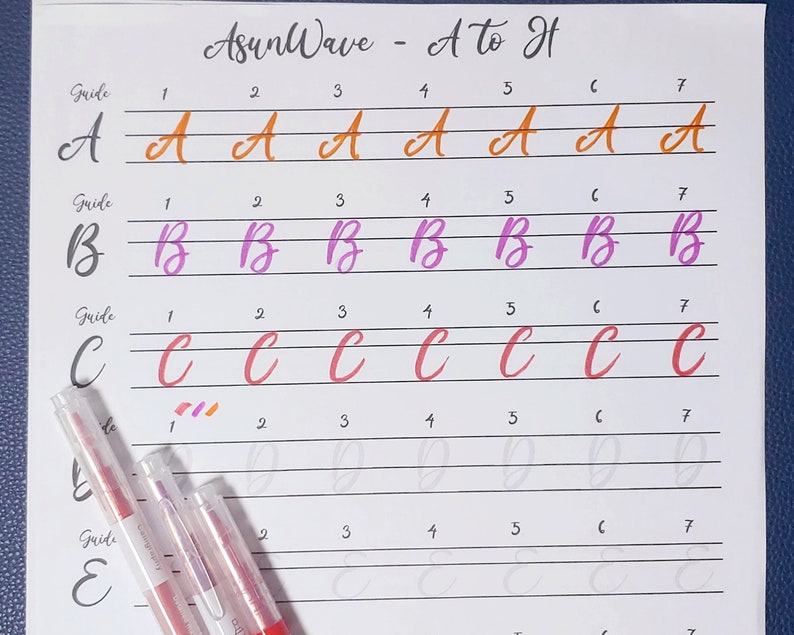 AsunWave - A to H
Guide 1 2 3 4 5 6 7
A A A A A A A A
Guide 1 2 3 4 5 6 7
B B B B B B B B
Guide 1 2 3 4 5 6 7
C C C C C C C C
1 2 3 4 5 6 7
D D D D D D
Guide 2 3 4 5 6 7
E E E E E E
5 6 7
Calligraphy